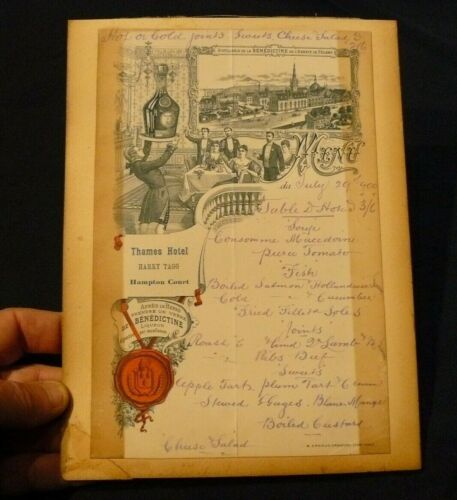 Hot or Cold Joints Sweets, Cheese Salad
2/6
DISTILLERIE DE LA BÉNÉDICTINE DE L'ABBAYE DE FÉCAMP
MENU
du July 29 1900
Table D Hote 3/6
Soup
Consomme Macedoine
Puree Tomato
Fish
Boiled Salmon Hollandaise
Cold " Cucumber
Fried Fillets Soles
Joints
Roast Lamb
" Ribs Beef
Sweets
Apple Tart, Plum Tart Cream
Stewed Blanc Mange
Boiled Custard
Cheese Salad
Thames Hotel
HARRY TAGG
Hampton Court
APRÈS LE REPAS
PRENDRE UN VERRE
DE BÉNÉDICTINE
LIQUEUR